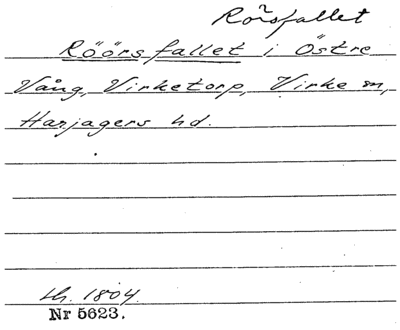 Rörsfallet
Röörs fallet i Östre
Vång, Virketorp, Virke sn,
Harjagers hd.
sh. 1804.
Nr 5623.